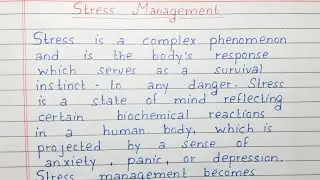 Stress Management
Stress is a complex phenomenon
and is the body's response
which serves as a survival
instinct - to any danger. Stress
is a state of mind reflecting
certain biochemical reactions
in a human body, which is
projected by a sense of
anxiety, panic, or depression.
Stress management becomes